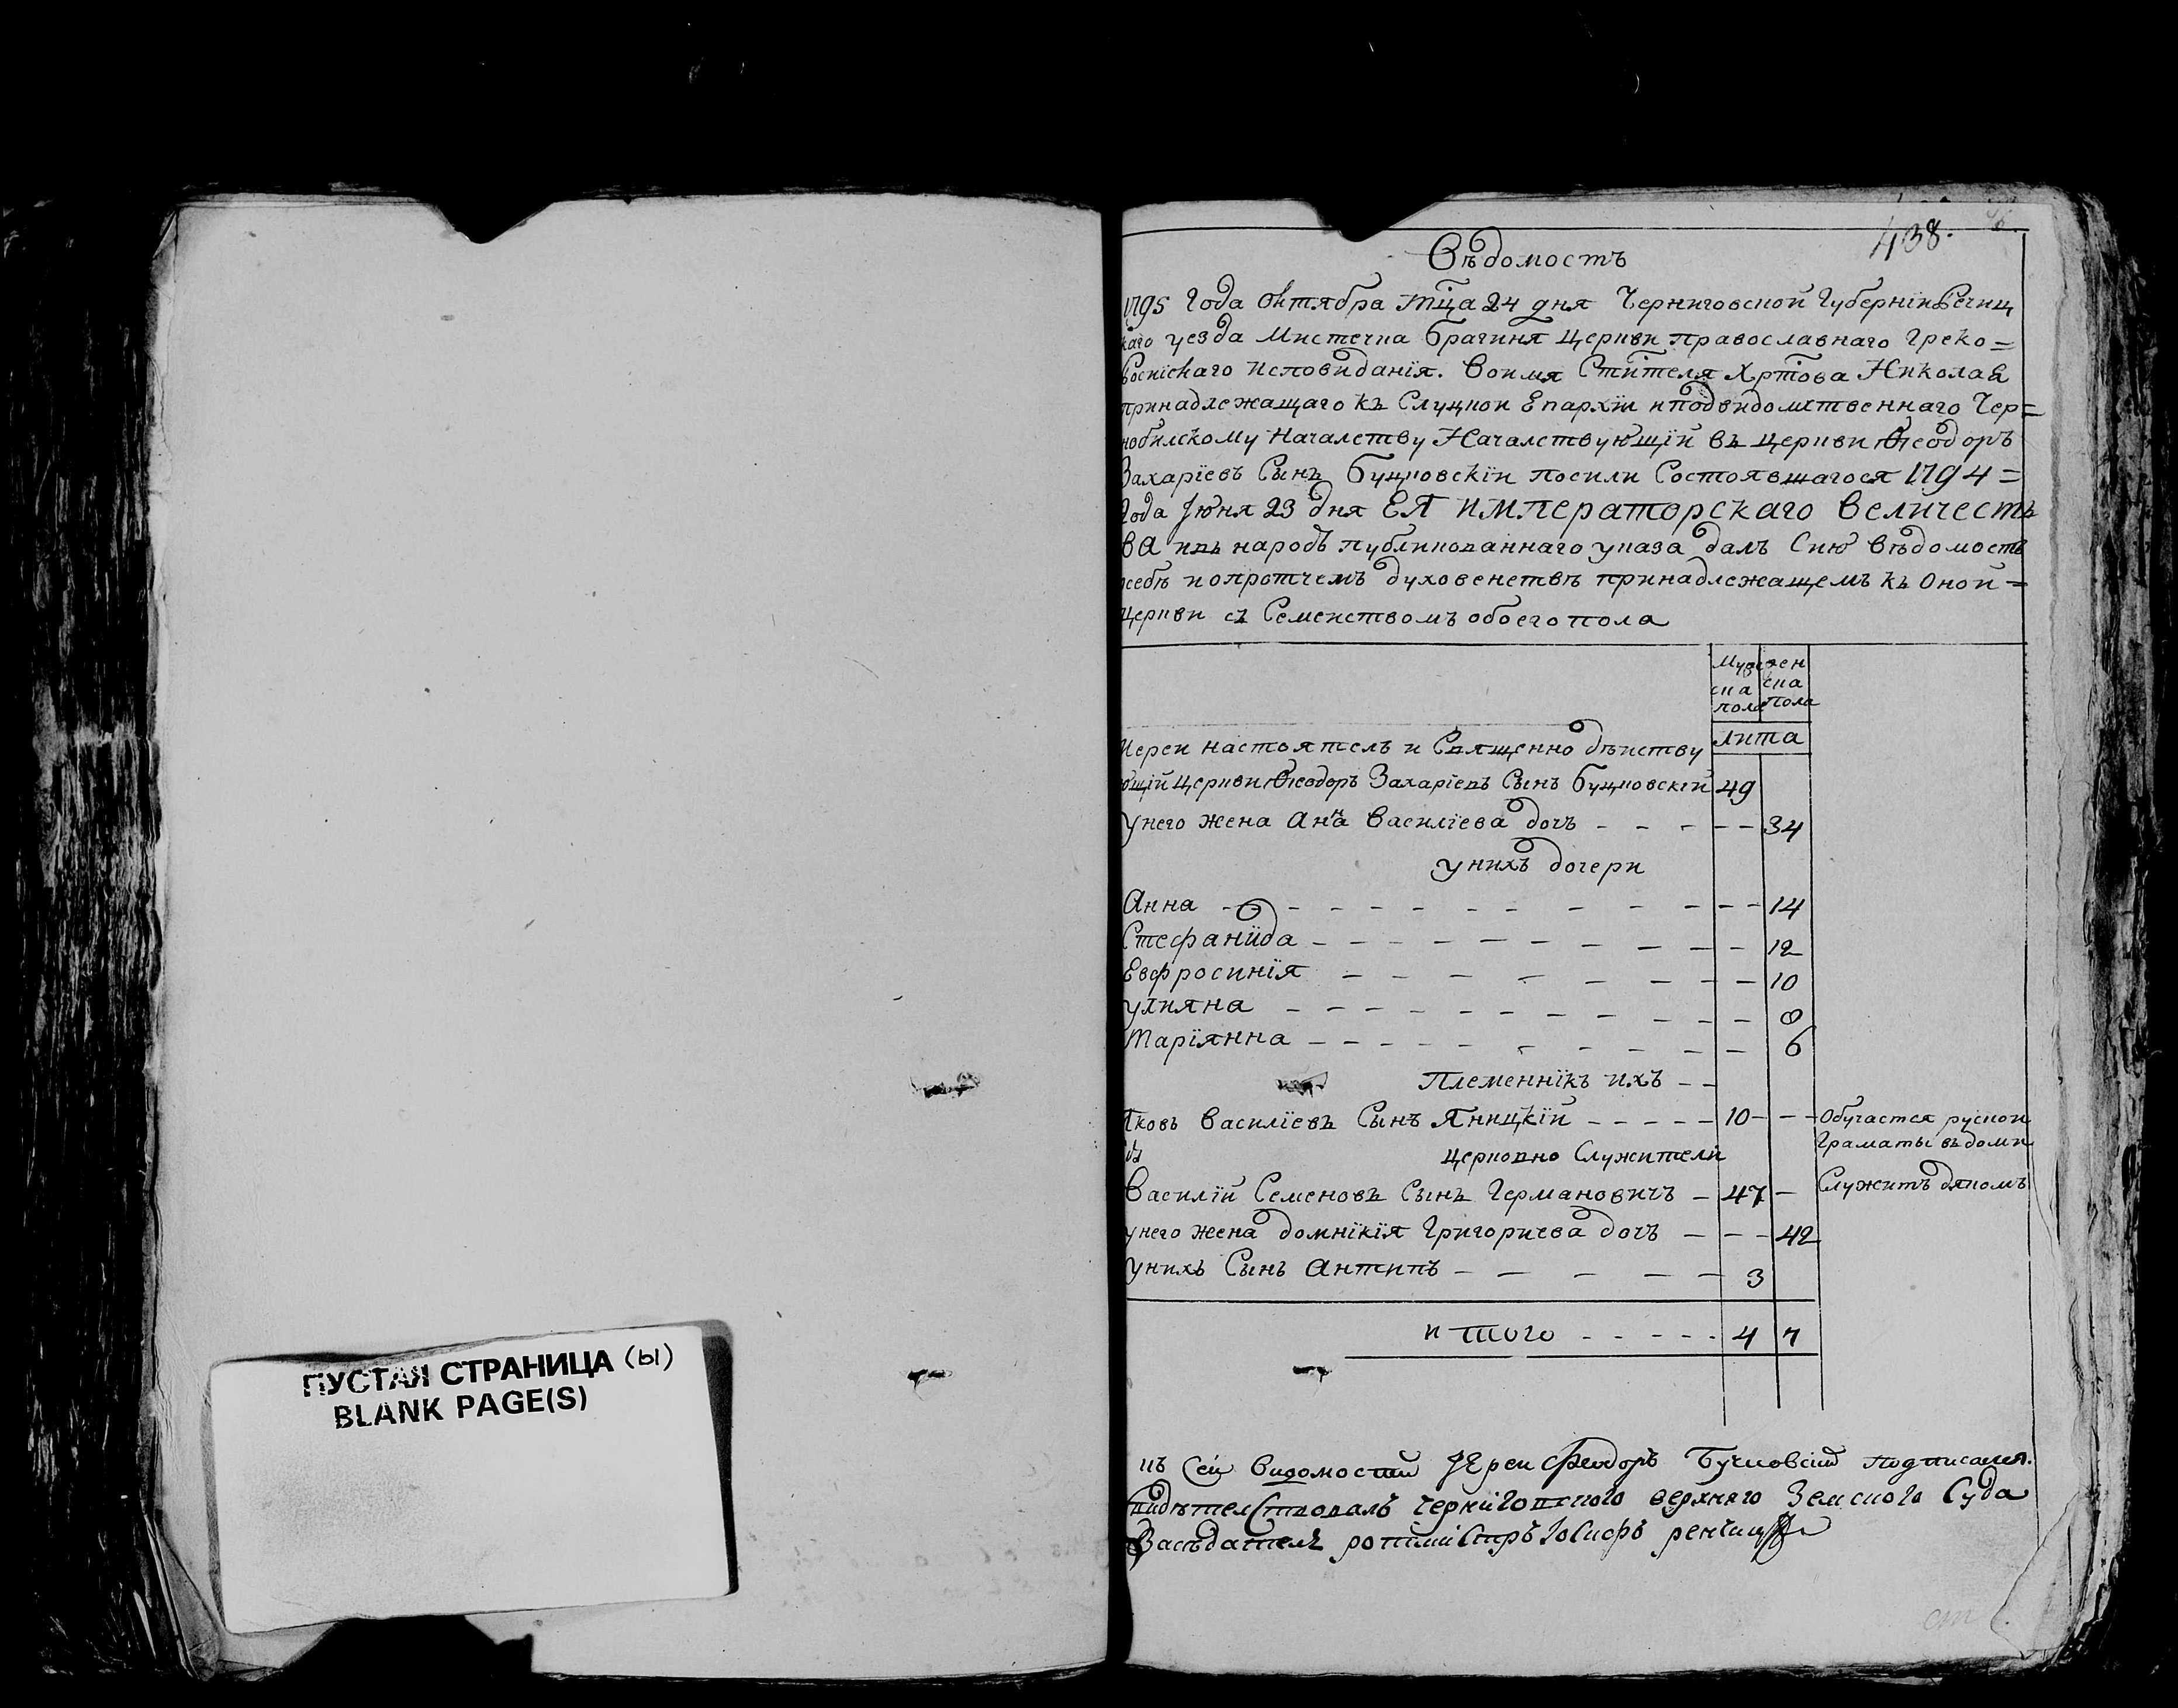 438.
Вѣдомостъ
1795 Года Октября мца 24 дня Черниговской Губерніи Речиц
каго уезда Мистечка Брагиня Церкви православнаго Греко=
Росиiскаго исповиданїя. Воимя Стителя Хртова Николая
принадлежащаго къ Слуцкои Епархїи и подвидомственнаго Чер=
нобилскому Началству Началствующїй въ церкви Ѳеодоръ
Захарїевъ Сынъ Буцковскїи посили Состоявшагося 1794=
Года Іюня 23 дня ЕЯ ИМПЕраторскаго Величестъ
ВА ивъ народъ публикованнаго указа далъ Сию вѣдомостъ
осебѣ и опротчемъ духовенствѣ принадлежащемъ къ Оной=
Церкви съ Семеиствомъ обоего пола
Мужеска пола
Женска пола
лита
Иереи настоятель и Священно дѣиству
ющїй Церкви Ѳеодоръ Захарїевъ Сынъ Буцковскїй 49
Унего жена Анна Василїева дочъ - - - - - 34
Унихъ дочери
Анна - - - - - - - - - - 14
Стефанїида - - - - - - - - - - 12
Евфросинїя - - - - - - - - 10
Улияна - - - - - - - - - - 8
Марїянна - - - - - - - - - - 6
Племеннїкъ ихъ - -
Яковъ Василїевъ Сынъ Яницкїй - - - - - 10 - - - Обучается рускои
Граматы въ доми
церковно Служители
Василїй Семеновъ Сынъ Германовичъ - 47 - Служитъ дякомъ
унего жена домнїкїя Григориева дочъ - - - 42
Унихъ Сынъ Антипъ - - - - - 3
итого - - - - - 4 7
къ Сеи Видомости Иереи Феодоръ Буцковскій подписался.
Свидѣтелствовалъ Черниговского верхнего Земского Суда
Засѣдатель ротмистръ Иосифъ
ПУСТАЯ СТРАНИЦА (Ы)
BLANK PAGE(S)